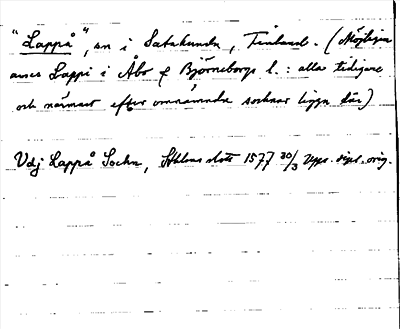 "Lappå", sn i Satakunda, Finland. (Möjligen
avses Lappi i Åbo o Björneborgs l.: alla tidigare
och närmast efter omnämnda socknar ligga där)
Vdj Lappå Sochn, Stklms slott 1577 30/3 Upps. dipl. orig.